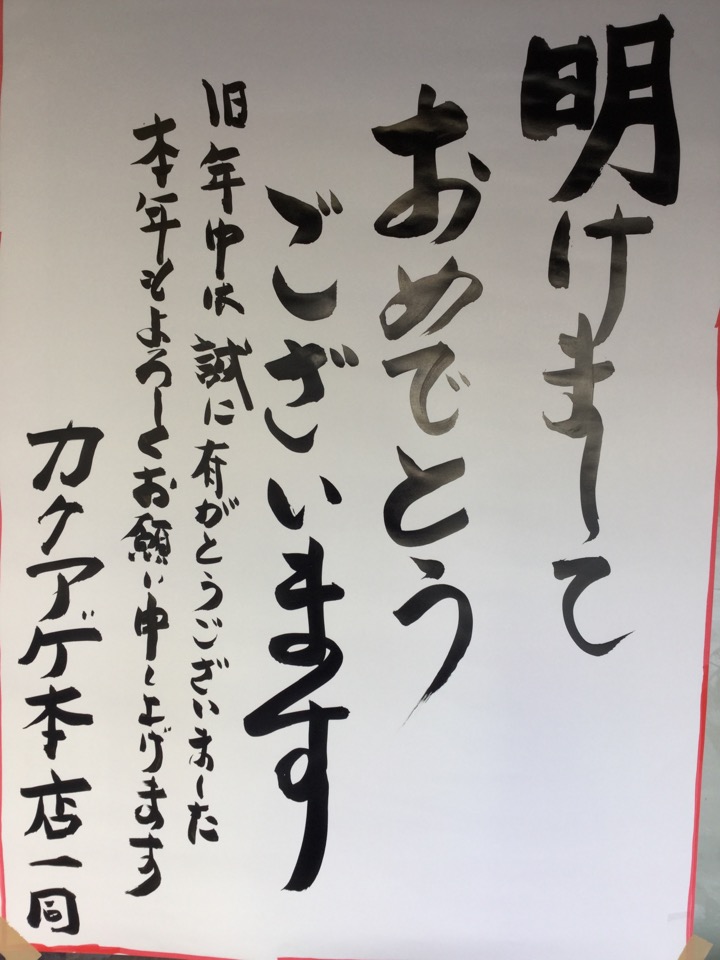 明けまして
おめでとう
ございます
旧年中は誠に有がとうございました
本年もよろしくお願い申し上げます
カクアゲ本店一同